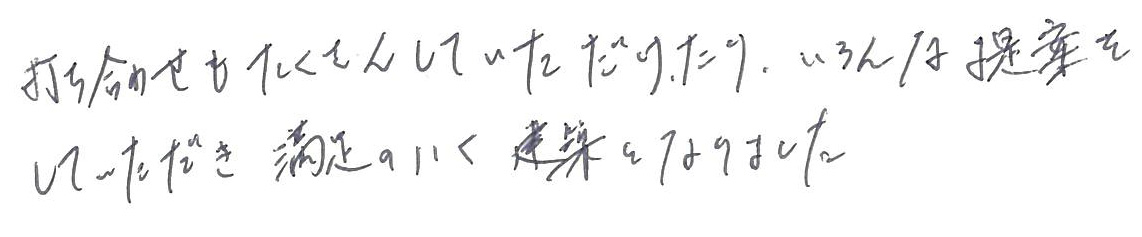 打ち合わせもたくさんしていただいたり、いろんな提案を
していただき 満足のいく 建築となりました